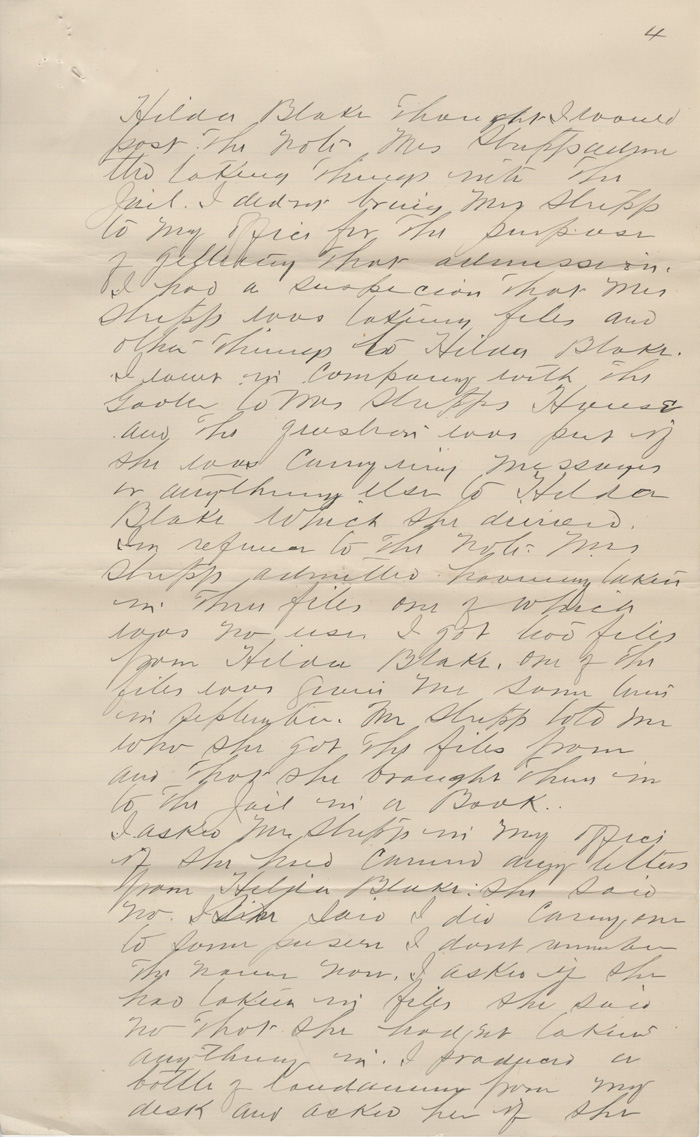 4
Hilda Blake thought I would
post the note. Mrs Stripp admit
ted taking things into the
Jail. I did not bring Mrs Stripp
to my office for the purpose
of getting that admission.
I had a suspecion that Mrs
Stripp was taking files and
other things to Hilda Blake.
I went in Company with the
Gaoler to Mrs Stripps House
and the question was put if
she was carrying messages
or anything else to Hilda
Blake which she denied.
In refernce to the note. Mrs
Stripp admitted having taken
in three files one of which
was no use. I got two files
from Hilda Blake. one of the
files was given me some time
in September. Mrs Stripp told me
who she got the files from
and that she brought them in
to the Jail in a Book.
I asked Mrs Stripp in my office
if she had carried any letters
from Hilda Blake. She said
no. She said I did carry one
to some person I dont remember
the name now. I asked if she
had taken in files she said
no that she hadnt taken
anything in. I produced a
bottle of laudanum from my
desk and asked her if she